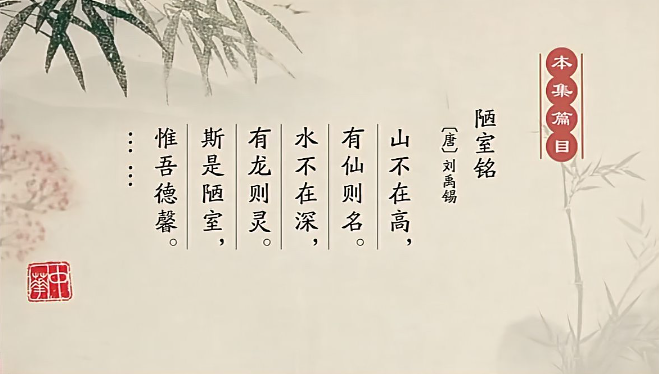 本集篇目
陋室铭
〔唐〕刘禹锡
山不在高，
有仙则名。
水不在深，
有龙则灵。
斯是陋室，
惟吾德馨。
……
中华